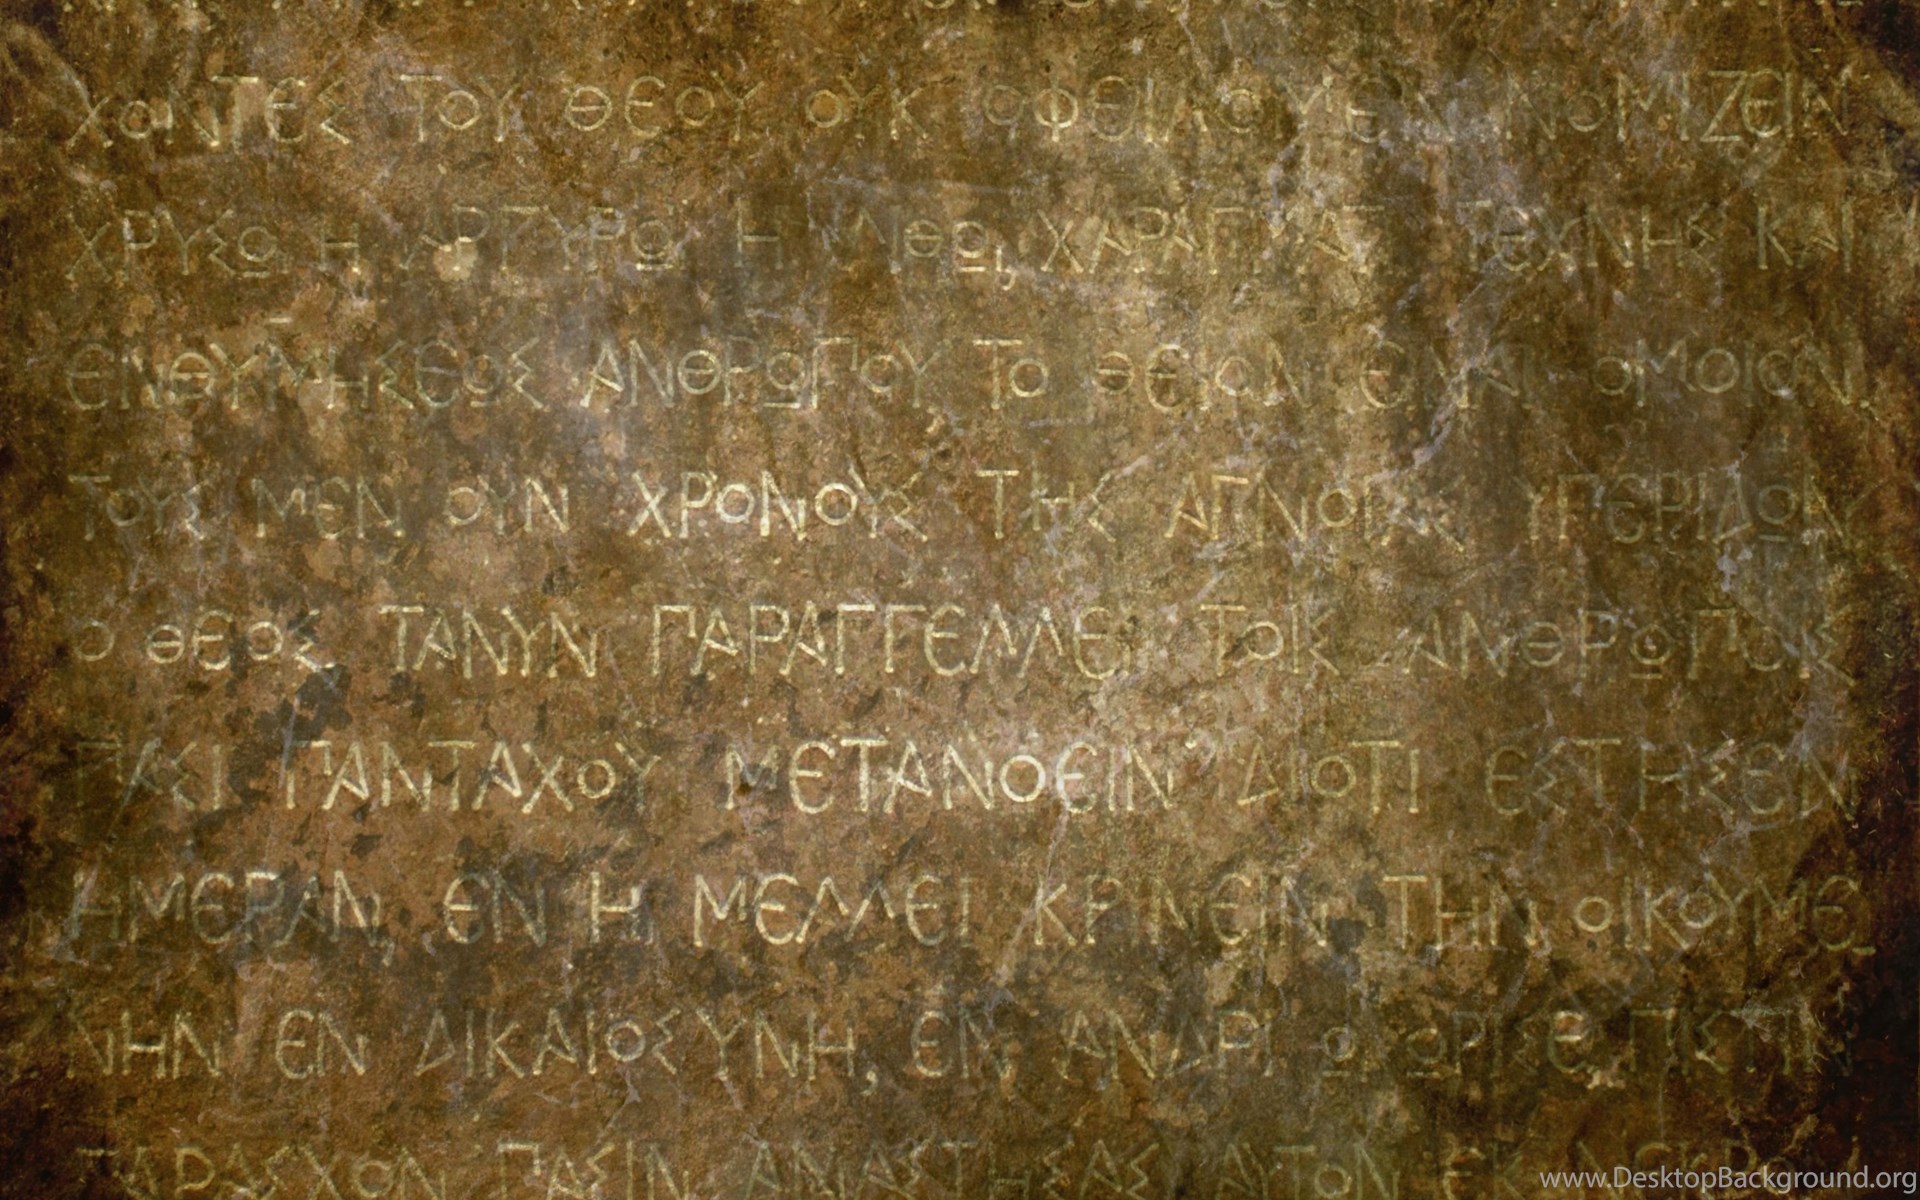 ΧΟΝΤΕΣ ΤΟΥ ΘΕΟΥ ΟΥΚ ΟΦΕΙΛΟΜΕΝ ΝΟΜΙΖΕΙΝ
ΧΡΥΣΩ Η ΑΡΓΥΡΩ Η ΛΙΘΩ, ΧΑΡΑΓΜΑΤΙ ΤΕΧΝΗΣ ΚΑΙ
ΕΝΘΥΜΗΣΕΩΣ ΑΝΘΡΩΠΟΥ ΤΟ ΘΕΙΟΝ ΕΙΝΑΙ ΟΜΟΙΟΝ.
ΤΟΥΣ ΜΕΝ ΟΥΝ ΧΡΟΝΟΥΣ ΤΗΣ ΑΓΝΟΙΑΣ ΥΠΕΡΙΔΩΝ
Ο ΘΕΟΣ ΤΑΝΥΝ ΠΑΡΑΓΓΕΛΛΕΙ ΤΟΙΣ ΑΝΘΡΩΠΟΙΣ
ΠΑΣΙ ΠΑΝΤΑΧΟΥ ΜΕΤΑΝΟΕΙΝ ΔΙΟΤΙ ΕΣΤΗΣΕΝ
ΗΜΕΡΑΝ, ΕΝ Η ΜΕΛΛΕΙ ΚΡΙΝΕΙΝ ΤΗΝ ΟΙΚΟΥΜΕ
ΝΗΝ ΕΝ ΔΙΚΑΙΟΣΥΝΗ, ΕΝ ΑΝΔΡΙ Ω ΩΡΙΣΕ, ΠΙΣΤΙΝ
ΠΑΡΑΣΧΩΝ ΠΑΣΙΝ ΑΝΑΣΤΗΣΑΣ ΑΥΤΟΝ ΕΚ ΝΕΚΡΩΝ
www.DesktopBackground.org